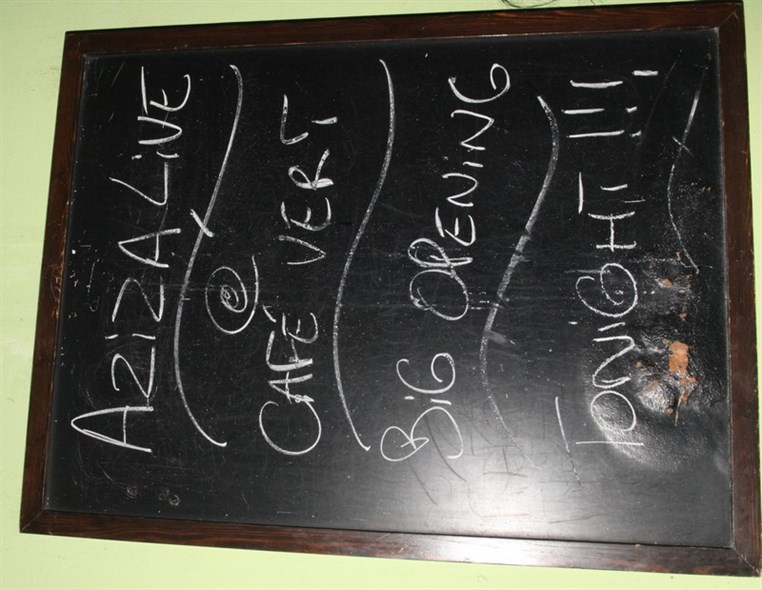 AZIZA LIVE
@
CAFÉ VERT
BiG OPENiNG
TONiGHT !!!